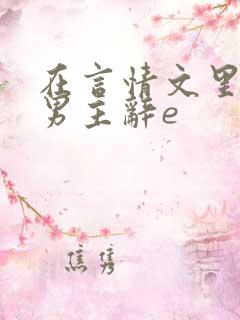 在言情文里
男主辭e
焦隽